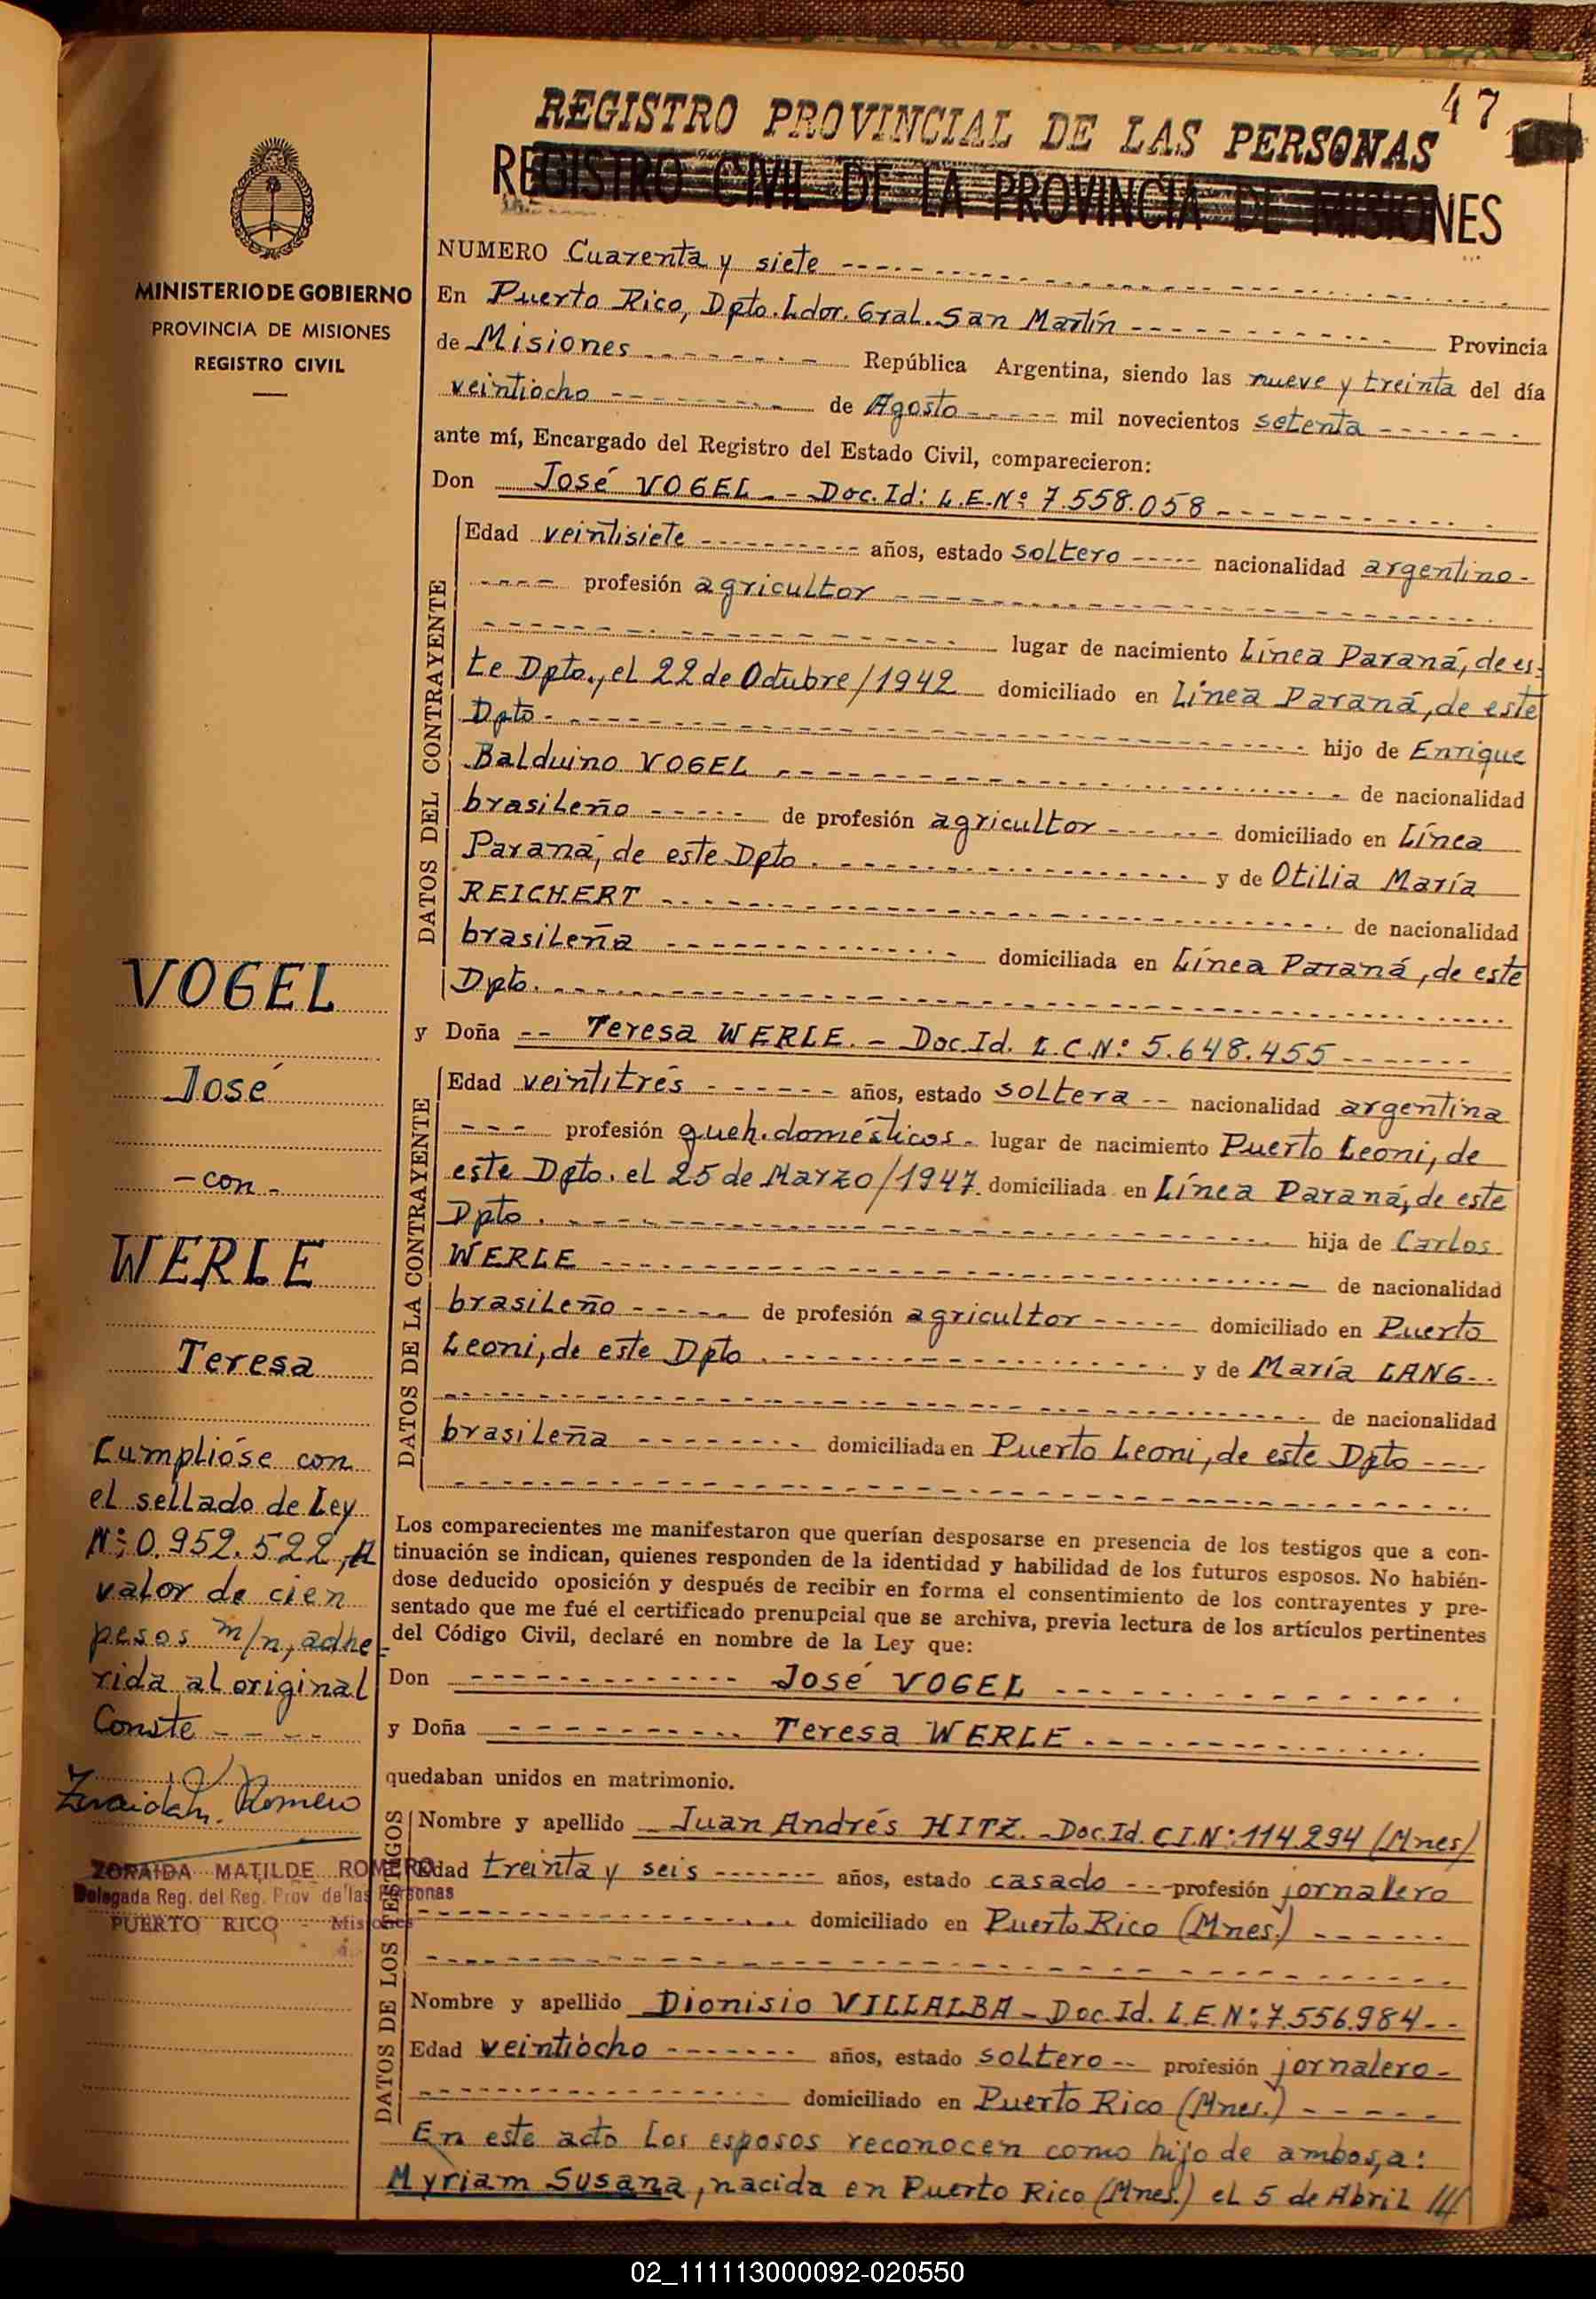 47
REGISTRO PROVINCIAL DE LAS PERSONAS
REGISTRO CIVIL DE LA PROVINCIA DE MISIONES
MINISTERIO DE GOBIERNO
PROVINCIA DE MISIONES
REGISTRO CIVIL
NUMERO Cuarenta y siete
En Puerto Rico, Dpto. Ldor. Gral. San Martín Provincia
de Misiones República Argentina, siendo las nueve y treinta del día
veintiocho de Agosto mil novecientos setenta
ante mí, Encargado del Registro del Estado Civil, comparecieron:
Don José VOGEL - Doc. Id: L.E. Nº 7.558.058
DATOS DEL CONTRAYENTE
Edad veintisiete años, estado soltero nacionalidad argentino
profesión agricultor
lugar de nacimiento Línea Paraná, de es-
te Dpto., el 22 de Octubre/1942 domiciliado en Línea Paraná, de este
Dpto. hijo de Enrique
Balduino VOGEL de nacionalidad
brasileño de profesión agricultor domiciliado en Línea
Paraná, de este Dpto. y de Otilia María
REICHERT de nacionalidad
brasileña domiciliada en Línea Paraná, de este
Dpto.
y Doña Teresa WERLE. - Doc. Id. L.C. Nº 5.648.455
DATOS DE LA CONTRAYENTE
Edad veintitrés años, estado soltera nacionalidad argentina
profesión queh. domésticos lugar de nacimiento Puerto Leoni, de
este Dpto. el 25 de Marzo/1947. domiciliada en Línea Paraná, de este
Dpto. hija de Carlos
WERLE de nacionalidad
brasileño de profesión agricultor domiciliado en Puerto
Leoni, de este Dpto. y de María LANG
de nacionalidad
brasileña domiciliada en Puerto Leoni, de este Dpto
Los comparecientes me manifestaron que querían desposarse en presencia de los testigos que a con-
tinuación se indican, quienes responden de la identidad y habilidad de los futuros esposos. No habién-
dose deducido oposición y después de recibir en forma el consentimiento de los contrayentes y pre-
sentado que me fué el certificado prenupcial que se archiva, previa lectura de los artículos pertinentes
del Código Civil, declaré en nombre de la Ley que:
Don José VOGEL
y Doña Teresa WERLE
quedaban unidos en matrimonio.
DATOS DE LOS TESTIGOS
Nombre y apellido Juan Andrés HITZ. - Doc. Id. C.I. Nº 114.294 (Mnes)
Edad treinta y seis años, estado casado profesión jornalero
domiciliado en Puerto Rico (Mnes.)
Nombre y apellido Dionisio VILLALBA - Doc. Id. L.E. Nº 7.556.984
Edad veintiocho años, estado soltero profesión jornalero
domiciliado en Puerto Rico (Mnes.)
En este acto los esposos reconocen como hijo de ambos, a:
Myriam Susana, nacida en Puerto Rico (Mnes.) el 5 de Abril ///
VOGEL
José
-con-
WERLE
Teresa
Cumplióse con
el sellado de Ley
Nº 0.952.522, A
valor de cien
pesos m/n, adhe-
rida al original
Conste
Zoraida M. Romero
ZORAIDA MATILDE ROMERO
Delegada Reg. del Reg. Prov. de las Personas
PUERTO RICO - Misiones
02_111113000092-020550